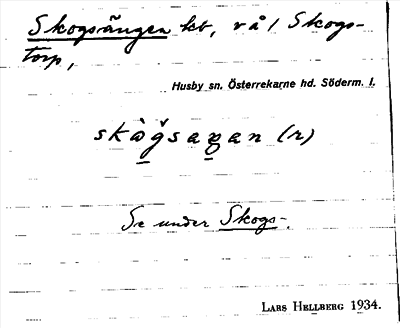 Skogsängen hb, vå / Skogs-
torp,
Husby sn. Österrekarne hd. Söderm. l.
(r)
Se under Skogs-.
LARS HELLBERG 1934.